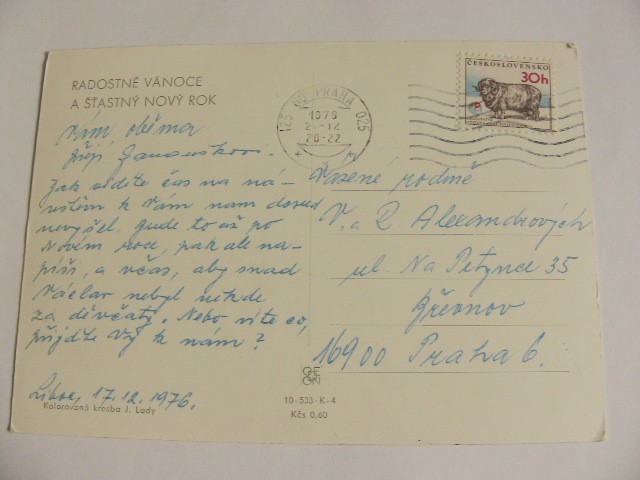 RADOSTNÉ VÁNOCE
A ŠŤASTNÝ NOVÝ ROK
Vám oběma
přejí Janouškovi.
Jak vidíte čas na ná-
vštěvu k Vám nám dosud
nevyšel. Bude to až po
Novém roce, pak ale na-
píši, a včas, aby snad
Václav nebyl někde
za děvčaty. Nebo víte co,
přijďte Vy k nám?
Liboc, 17.12.1976.
Kolorovaná kresba J. Lady
125 PRAHA 025
1976
-12
20-22
ČESKOSLOVENSKO
30h
Vážené rodině
V. a R. Alexandrových
ul. Na Petynce 35
Břevnov
16900 Praha 6.
10-533-K-4
Kčs 0,60